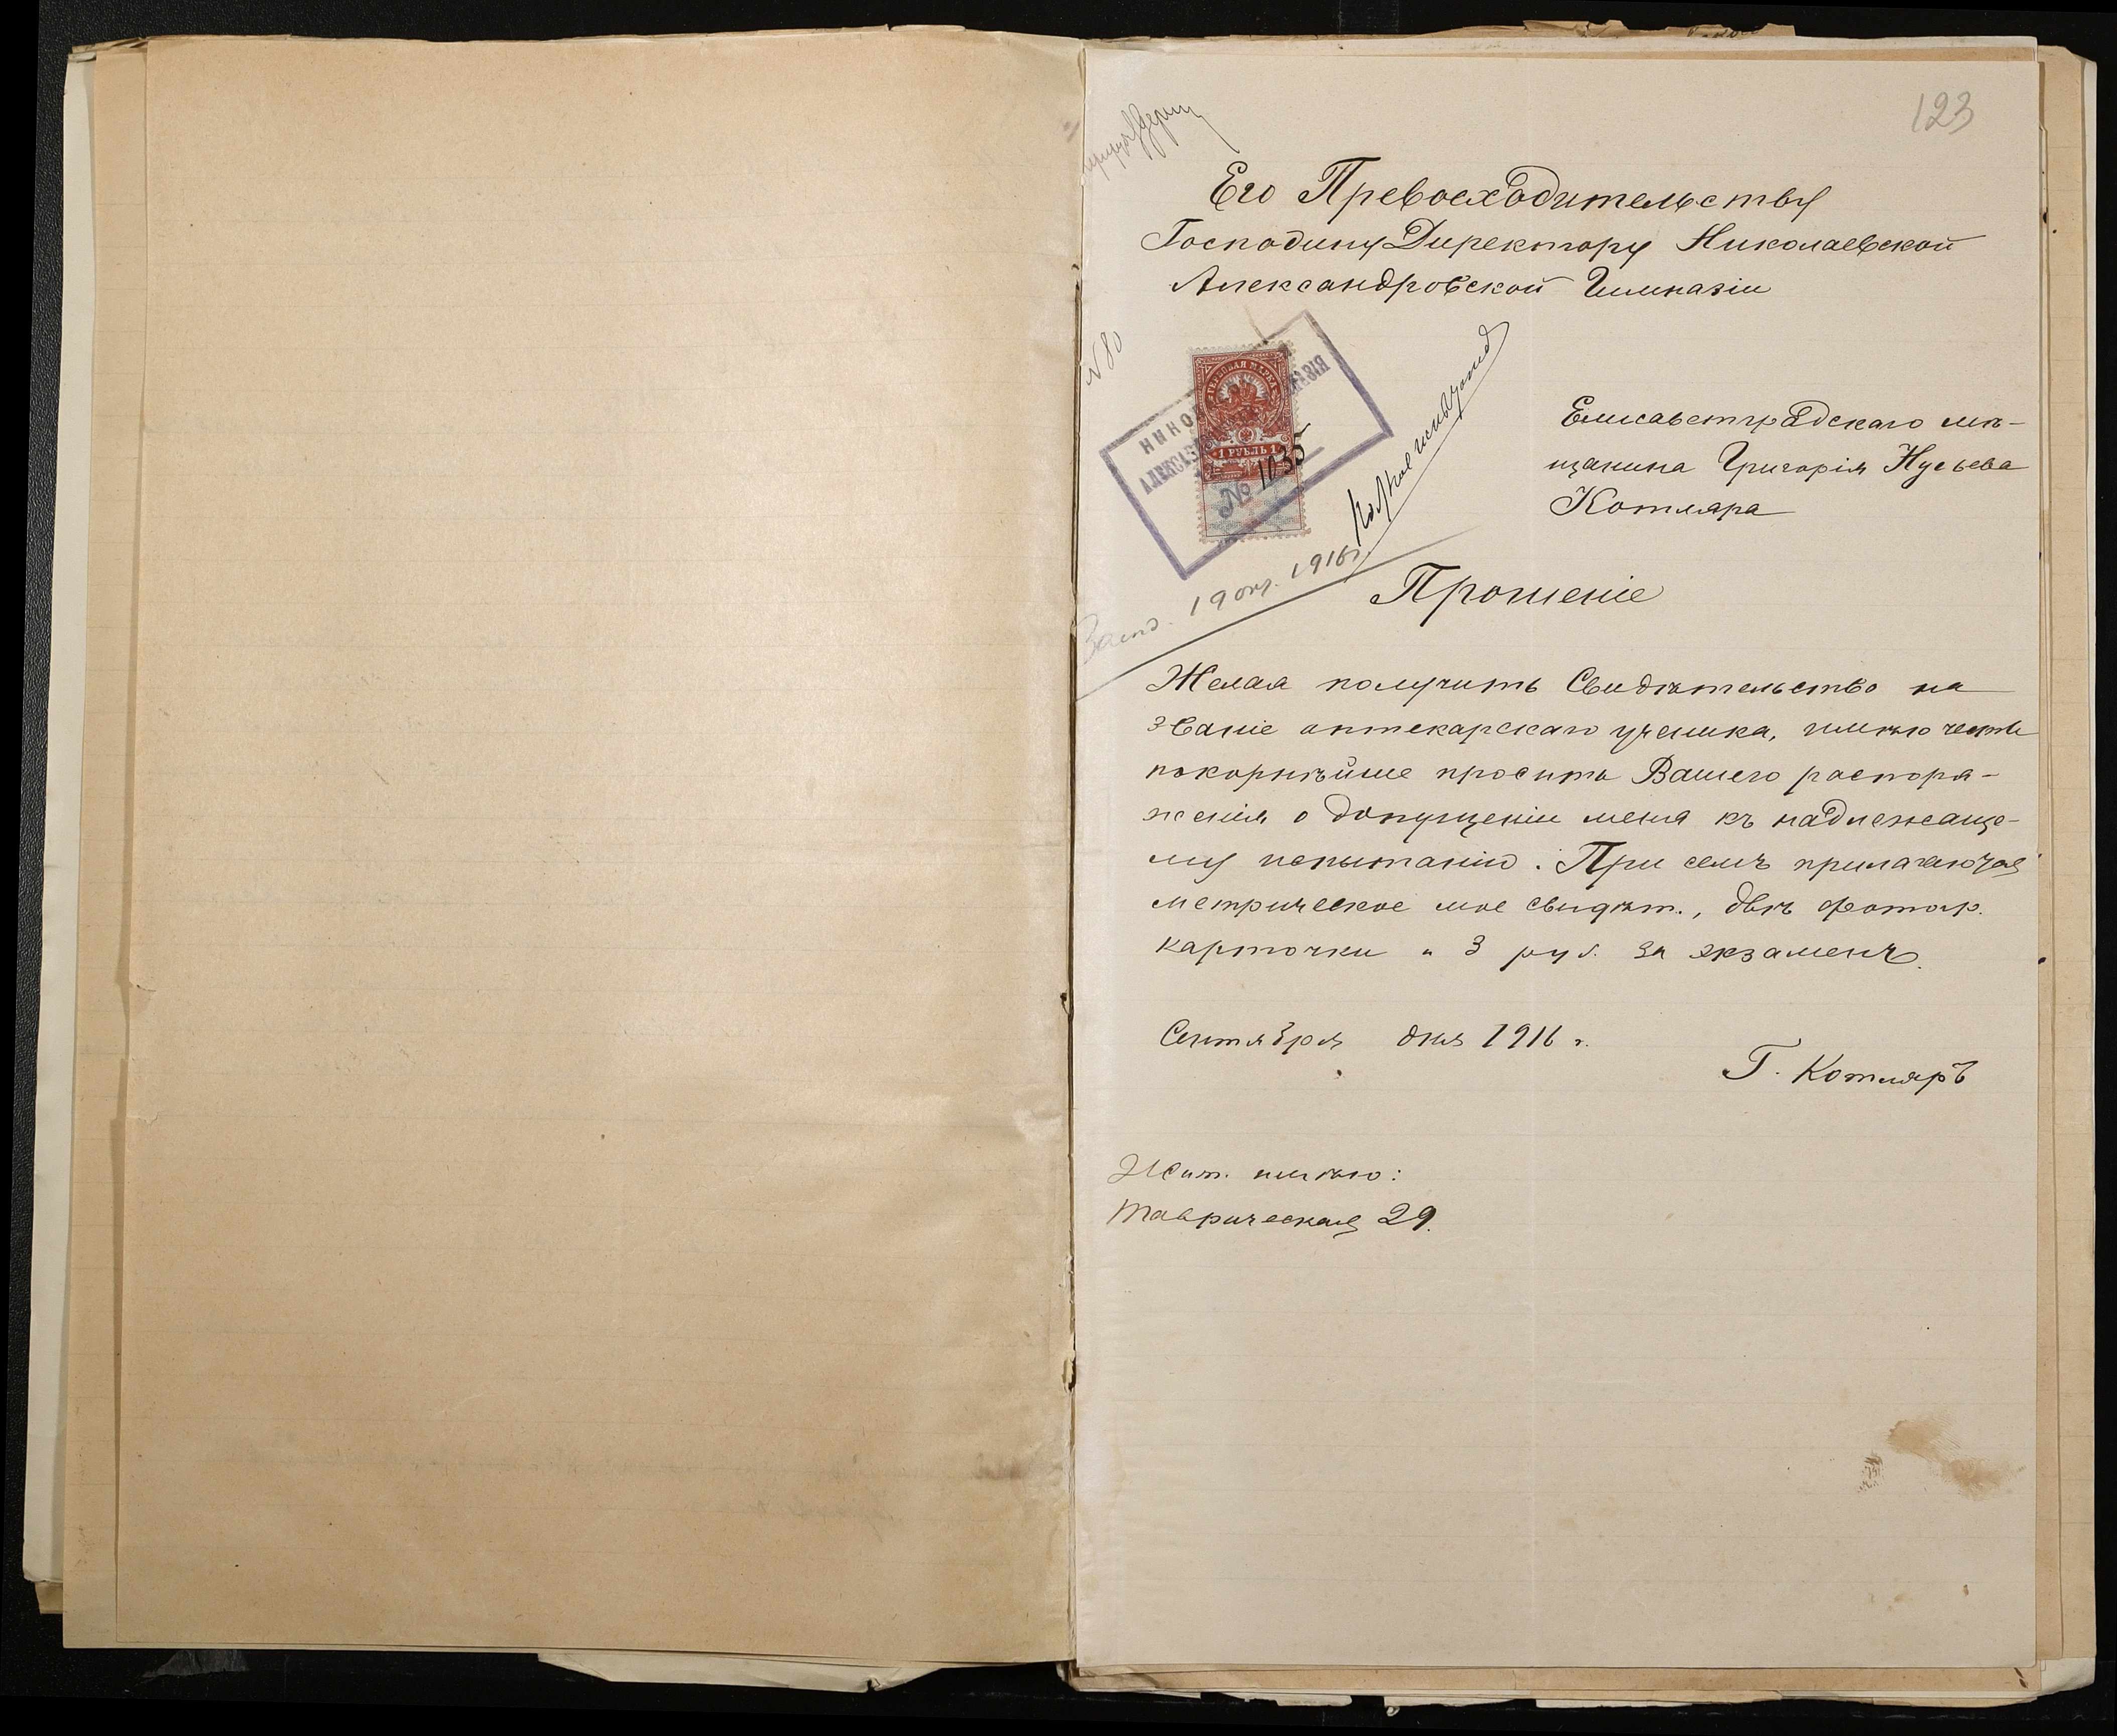 123
Его Превосходительству
Господину Директору Николаевской
Александровской Гимназіи
N 80
ГЕРБОВАЯ МАРКА
1 РУБЛЬ 1
№ 1035
19 окт. 1916 г.
Елисаветградскаго мѣ-
щанина Григорія Нусьева
Котляра
Прошеніе
Желая получить Свидѣтельство на
званіе аптекарскаго ученика, имѣю честь
покорнѣйше просить Вашего распоря-
женія о допущеніи меня къ надлежаще-
му испытанію. При семъ прилагаются
метрическое мое свидѣт., двѣ фотогр.
карточки и 3 руб. за экзаменъ.
Сентября дня 1916 г.
Г. Котляръ
Жит. имѣю:
Таврическая 29.